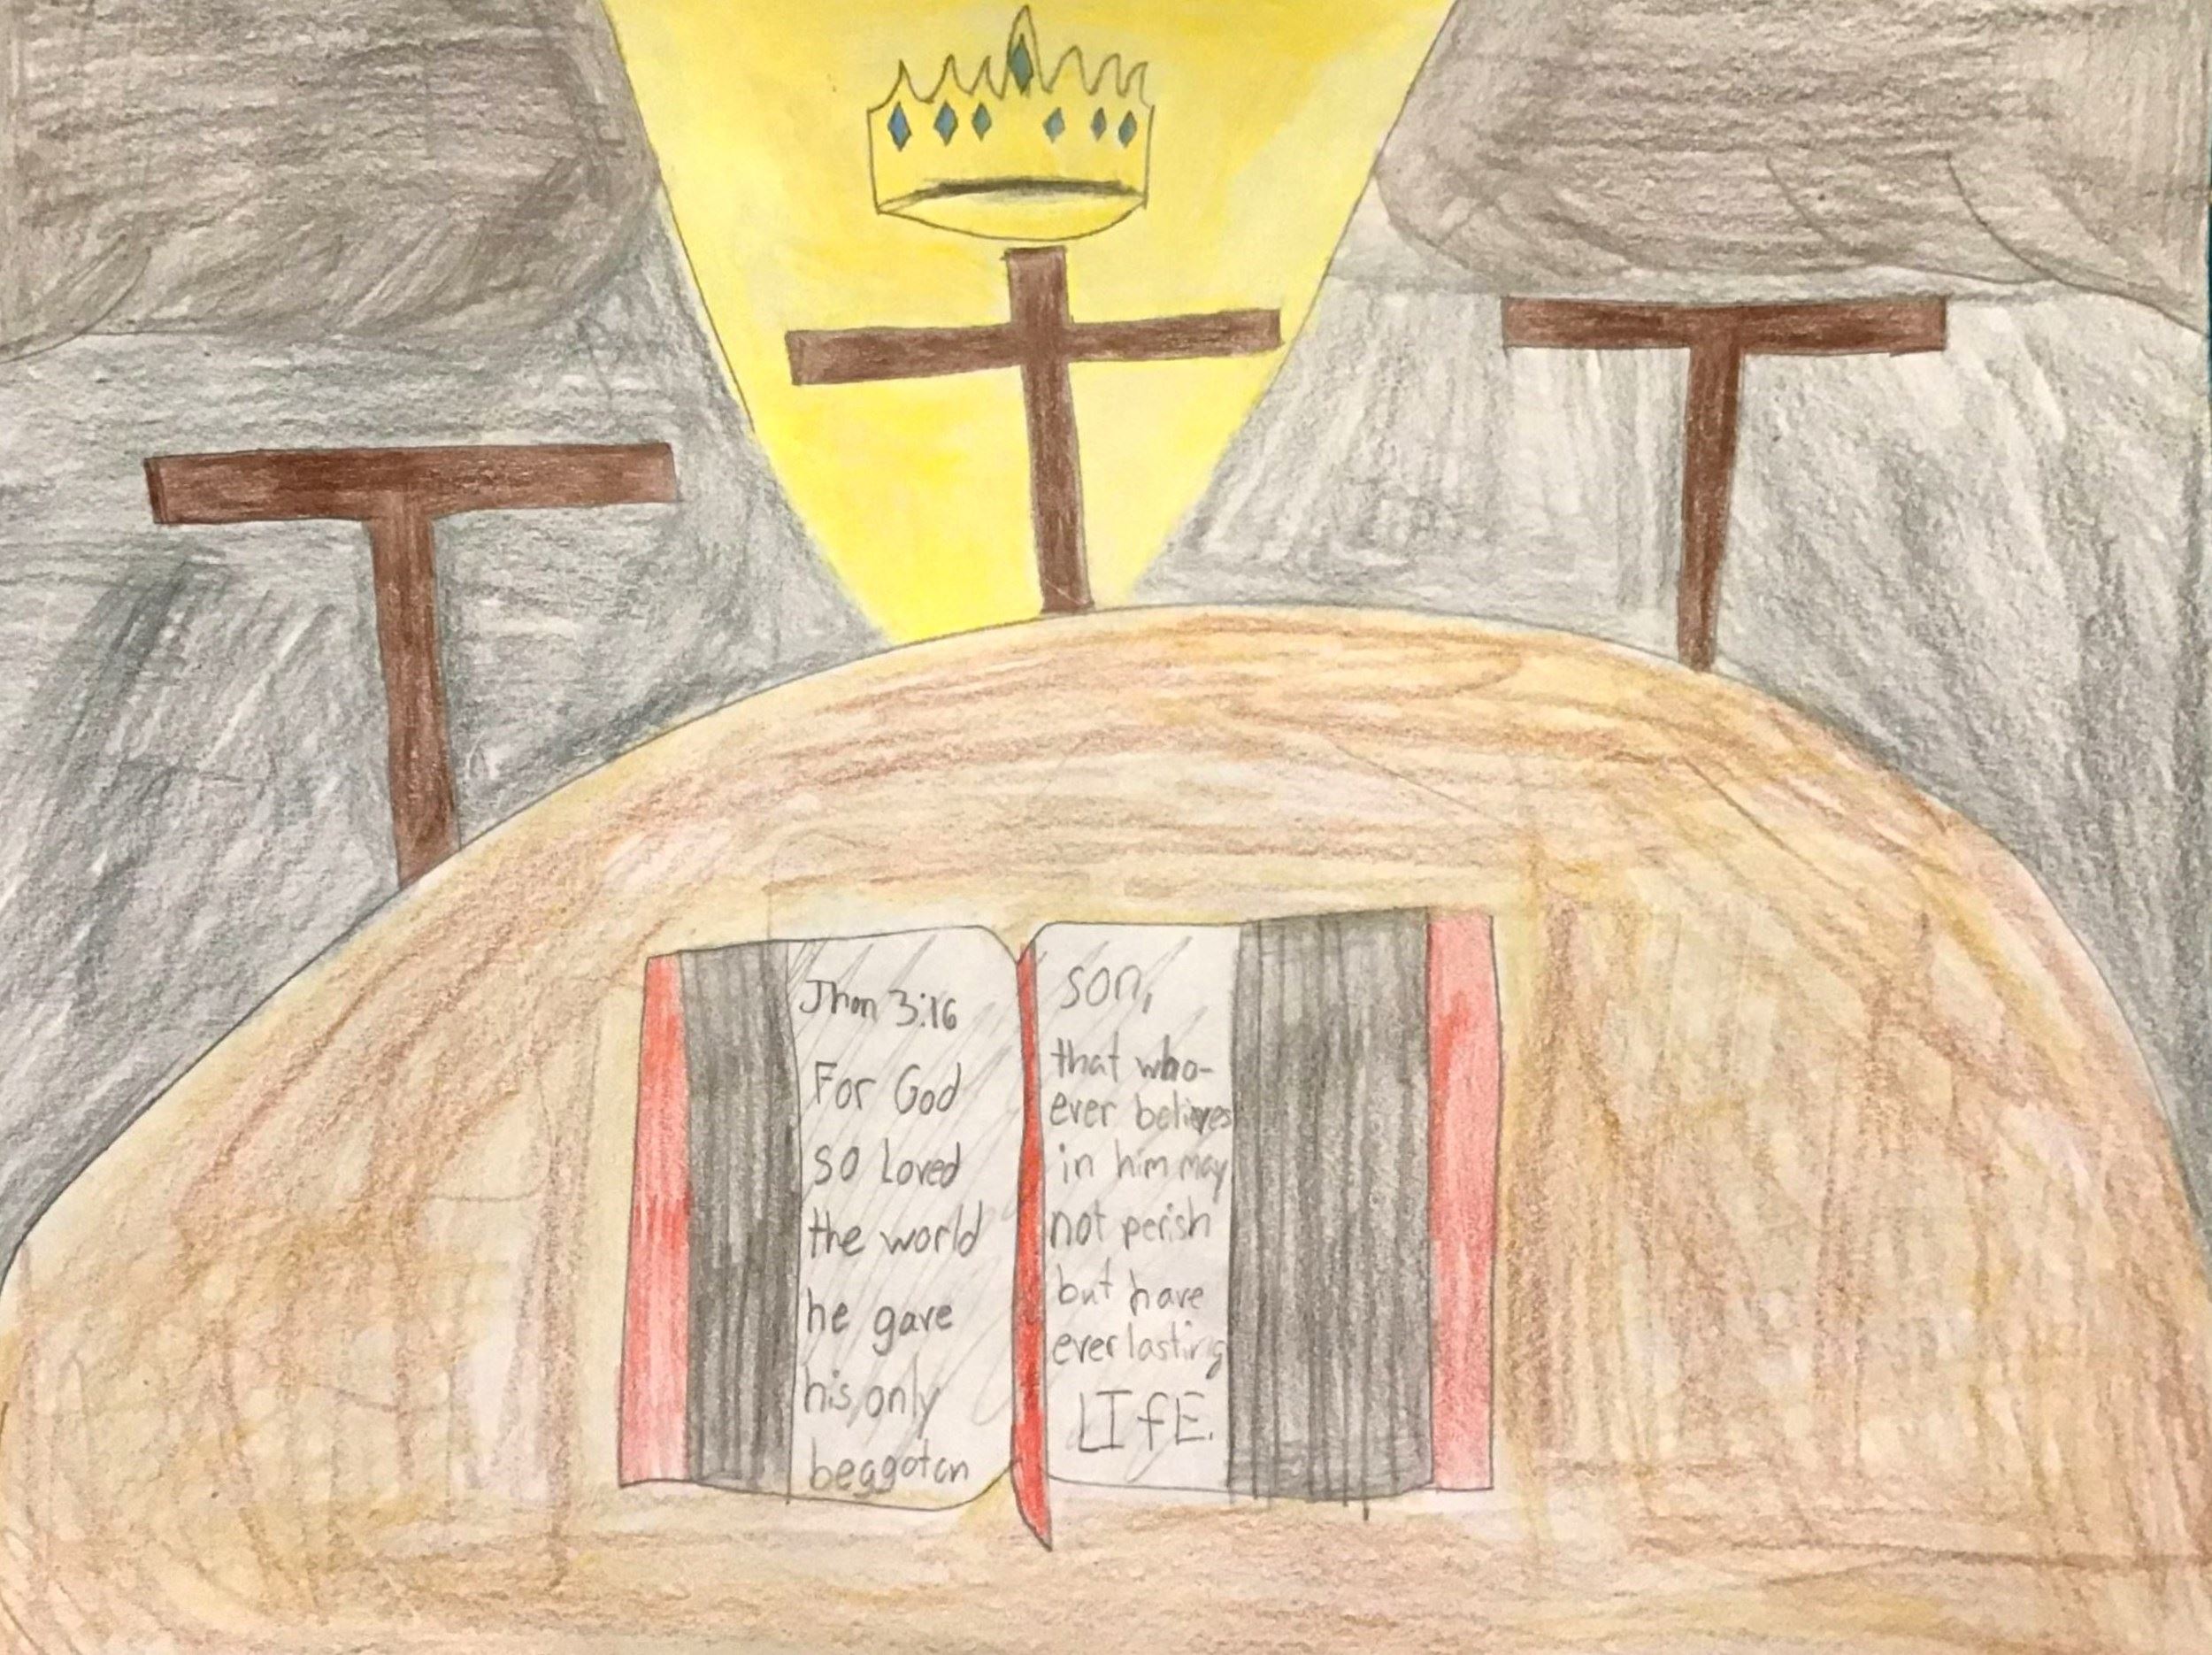 Jhon 3:16
For God
so Loved
the world
he gave
his only
beggotan
son,
that who-
ever believes
in him may
not perish
but have
everlasting
LIfE.